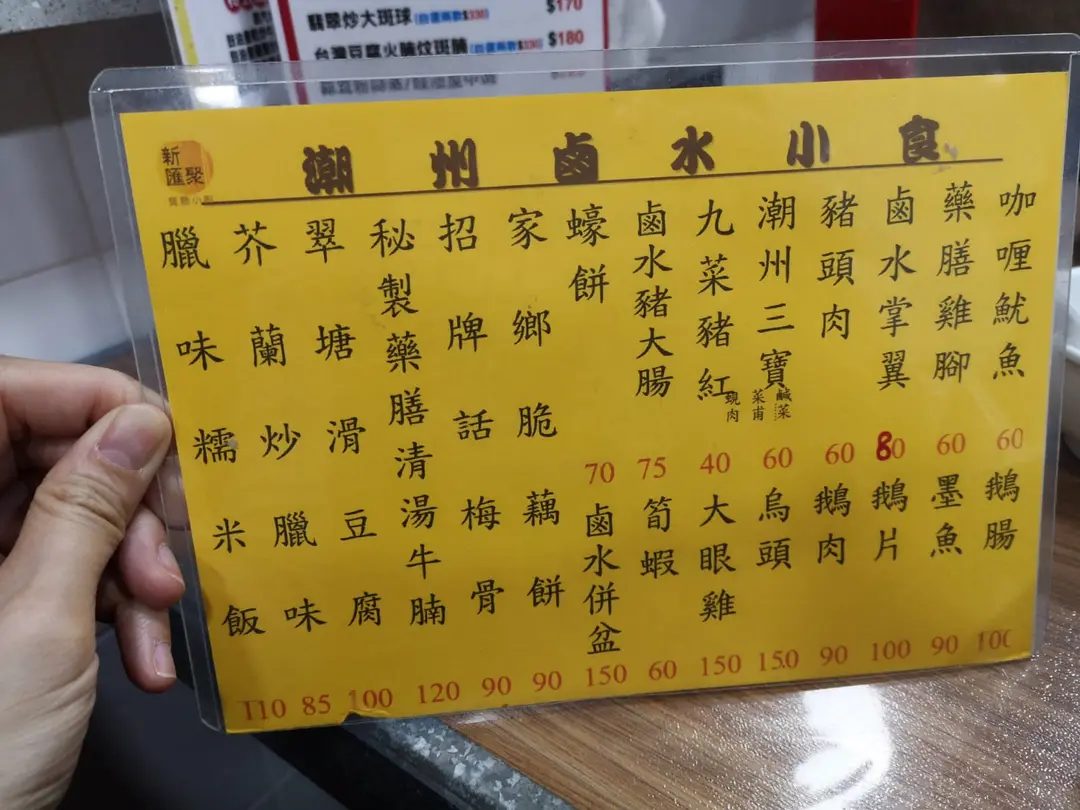 翡翠炒大斑球 (自選兩數$330) $170
台灣豆腐火腩炆斑腩 (自選兩數$330) $180
新匯聚
潮州鹵水小食
咖喱魷魚 60
藥膳雞腳 60
鹵水掌翼 80
豬頭肉 60
潮州三寶 鹹菜 菜甫 蜆肉 60
九菜豬紅 40
鹵水豬大腸 75
蠔餅 70
鵝腸 100
墨魚 90
鵝片 100
鵝肉 90
烏頭 150
大眼雞 150
筍蝦 60
鹵水併盆 150
家鄉脆藕餅 90
招牌話梅骨 90
秘製藥膳清湯牛腩 120
翠塘滑豆腐 100
芥蘭炒臘味 85
臘味糯米飯 110